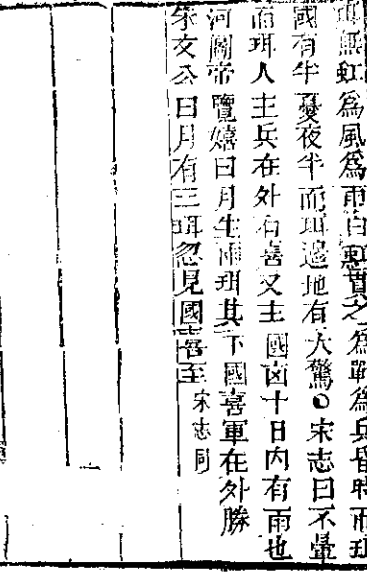 珥無虹為風為雨白虹貫之為戰為兵昏時而珥
國有半憂夜半而珥邊地有大驚○宋志曰不暈
而珥人主兵在外有喜又主國凶十日内有雨也
河圖帝覽嬉曰月生兩珥其下國喜軍在外勝
朱文公曰月有三珥忽見國喜至宋志同